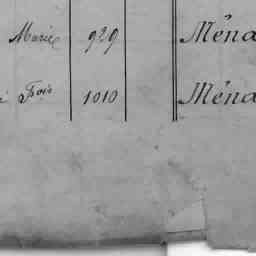 Marie 929 Ména
Fois 1010 Ména